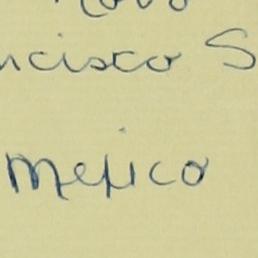 ncisco S
Mejico